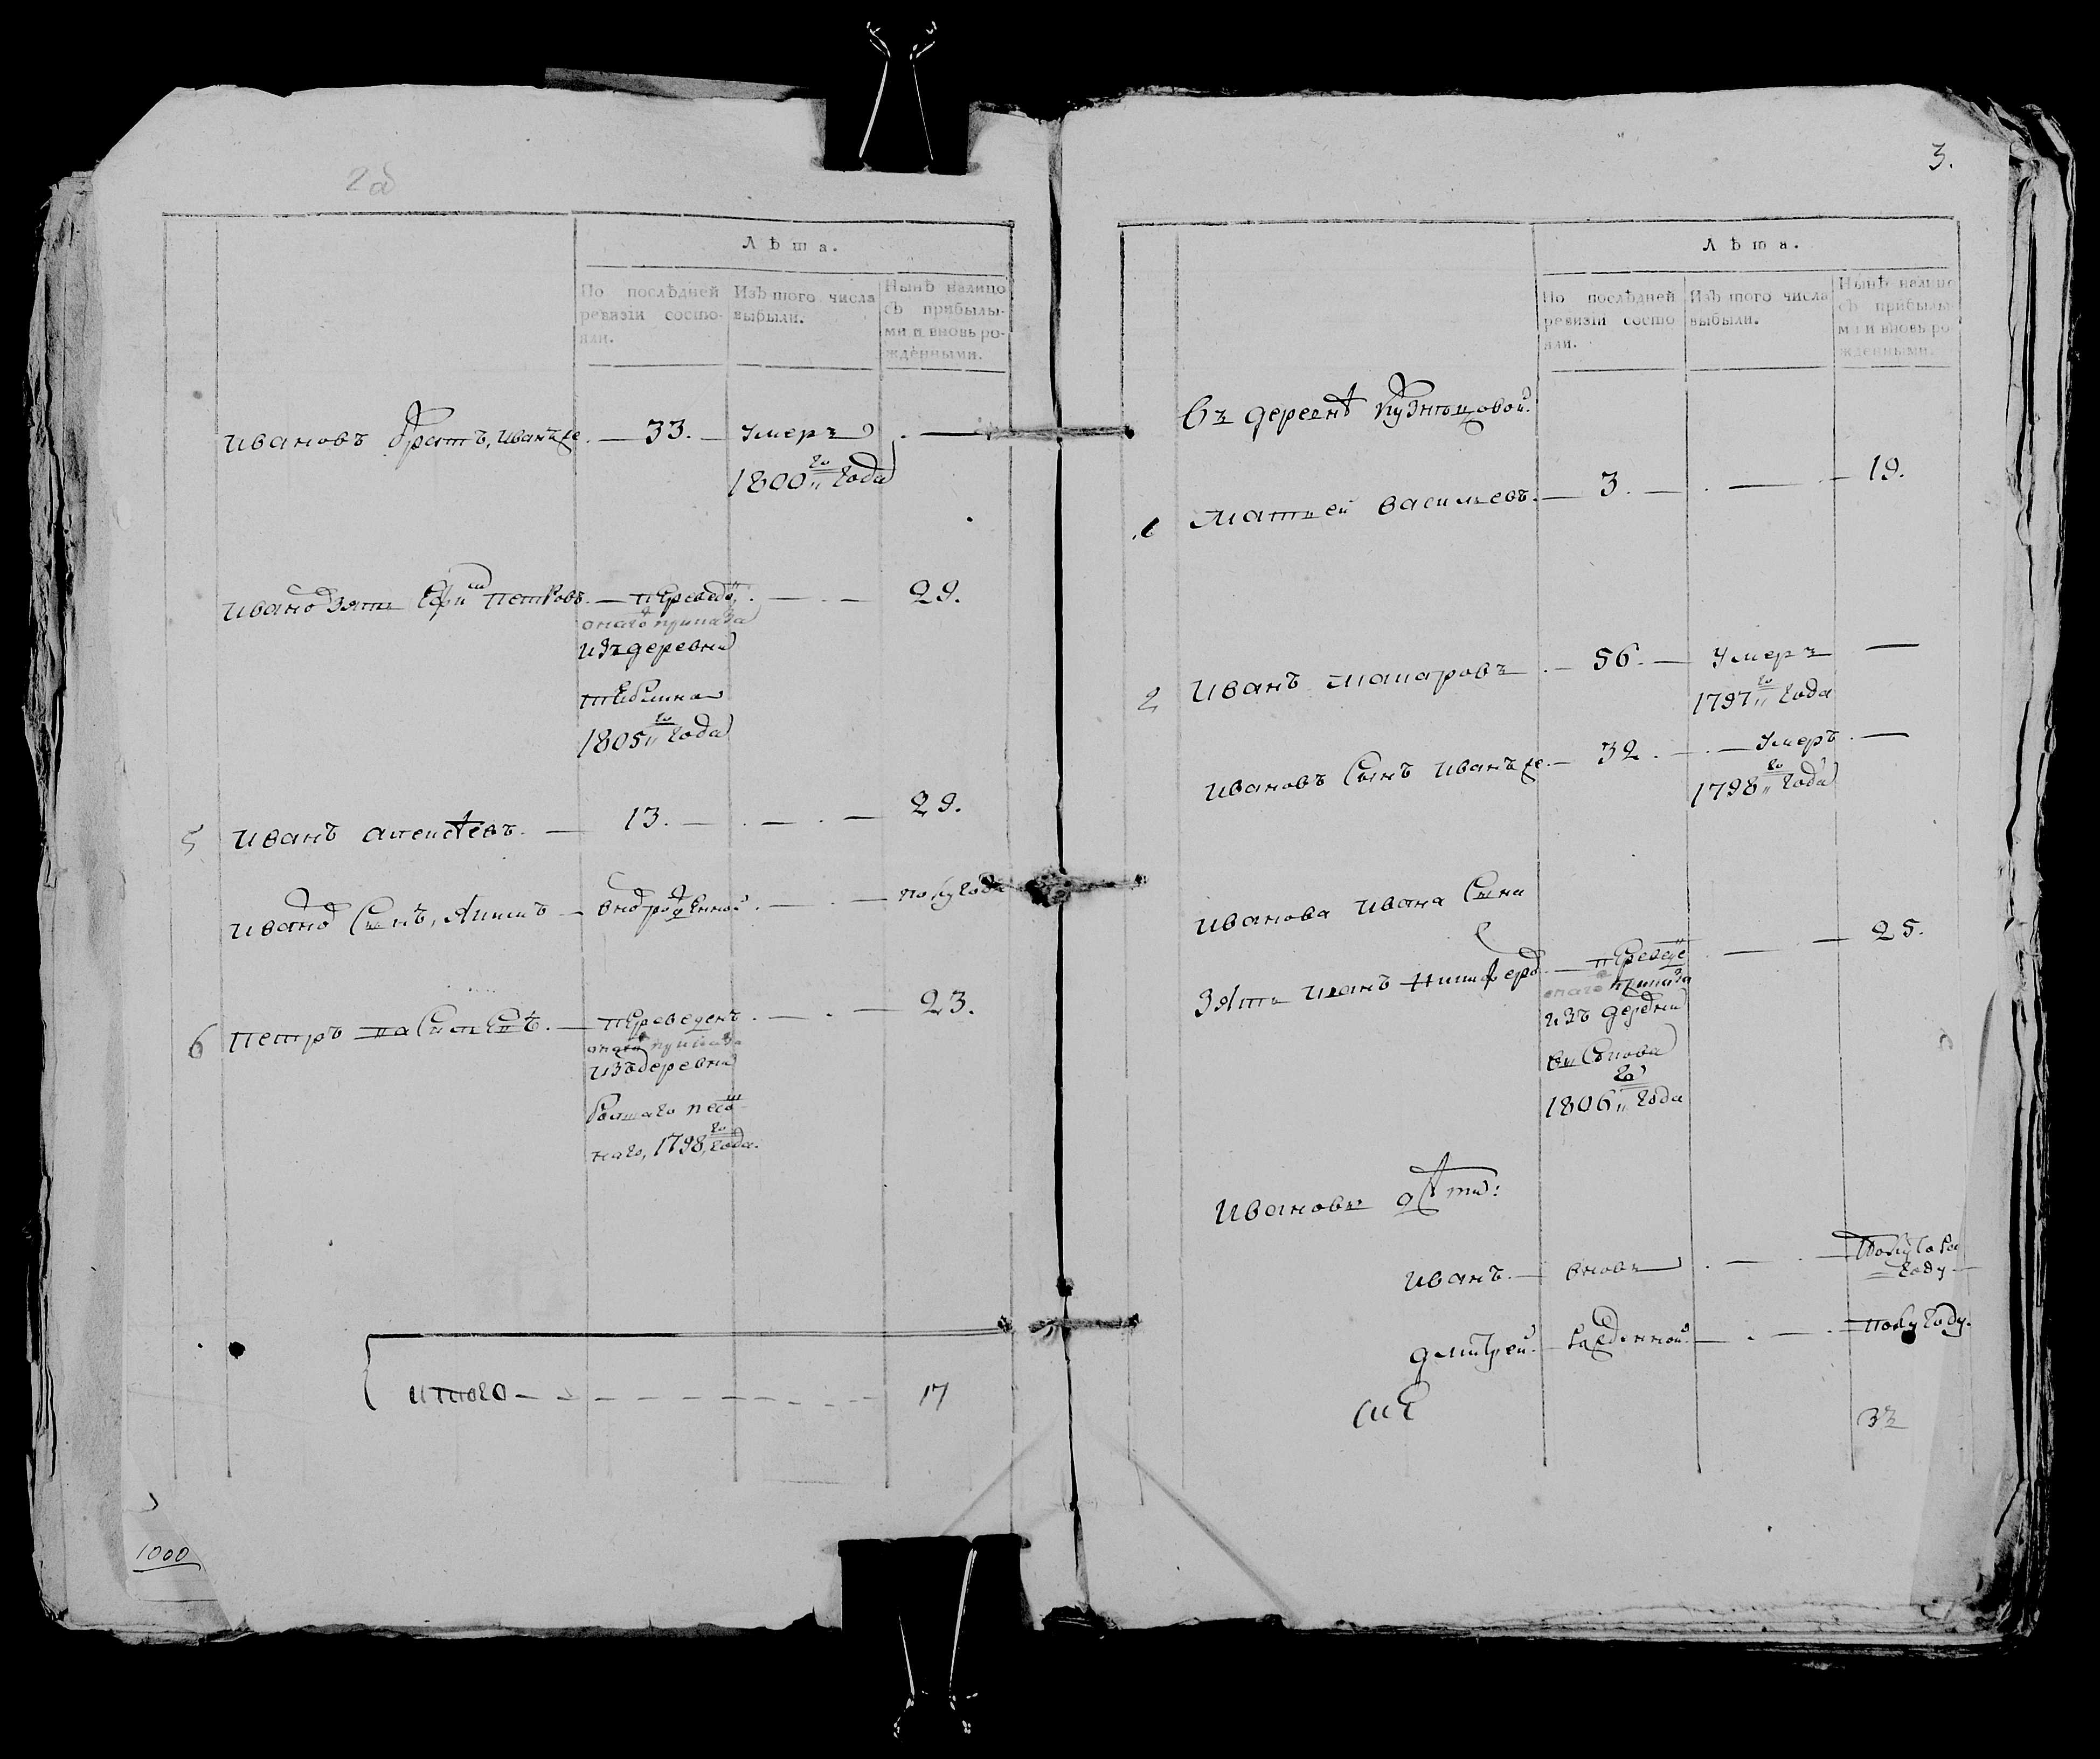 2об
Лѣта.
По послѣдней ревизіи состояли.
Изъ того числа выбыли.
Нынѣ налицо съ прибылыми и вновь рожденными.
Ивановъ братъ, Иванъ же — 33. — умеръ —
1800го года
Ивановъ зять Ефимъ Петровъ — переведенъ — 29.
онаго приказа
изъ деревни
1805го года
5 Иванъ Алексѣевъ — 13. — 29.
Ивановъ сынъ, — вновь рожденной — полугода
6 Петръ — переведенъ — 23.
онаго приказа
изъ деревни
наго, 1798го года.
Итого — 17
1000
3.
Лѣта.
По послѣдней ревизіи состояли.
Изъ того числа выбыли.
Нынѣ налицо съ прибылыми и вновь рожденными.
Въ деревнѣ Кузнецовой.
1 Матвей Васильевъ — 3. — 19.
2 Иванъ Макаровъ — 56. — умеръ —
1797го года
Ивановъ сынъ Иванъ же — 32. — умеръ —
1798го года
Иванова Ивана сына
зять Иванъ Никифоровъ — переведенъ — 25.
онаго приказа
изъ деревни
1806го года
Ивановы дѣти:
Иванъ — вновь — полутора
году
Дмитрей — рожденной — полугоду.